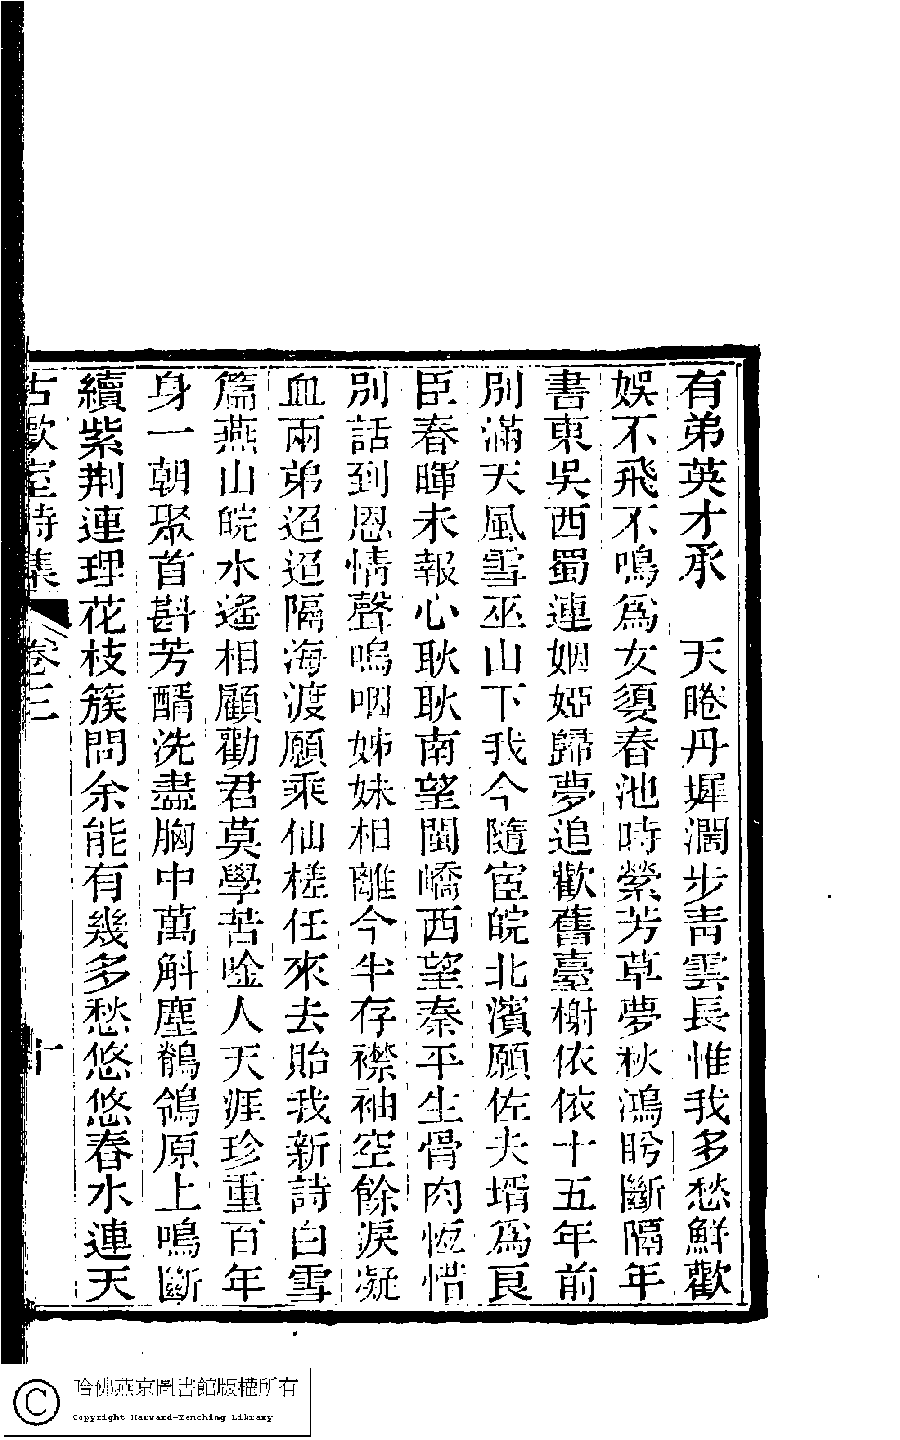 有弟英才承　天睠丹墀濶步靑雲長惟我多愁鮮歡
娛不飛不鳴爲女嬃春池時縈芳草夢秋鴻盻斷隔年
書東吳西蜀連姻婭歸夢追歡舊臺榭依依十五年前
別滿天風雪巫山下我今隨宦皖北濱願佐夫壻爲良
臣春暉未報心耿耿南望閩嶠西望秦平生骨肉恆惜
別話到恩情聲嗚咽姊妹相離今半存襟袖空餘淚凝
血兩弟迢迢隔海渡願乘仙槎任來去貽我新詩白雪
篇燕山皖水遙相顧勸君莫學苦唫人天涯珍重百年
身一朝聚首斟芳醑洗盡胸中萬斛塵鶺鴒原上鳴斷
續紫荆連理花枝簇問余能有幾多愁悠悠春水連天
古歡室詩集　卷三　十
哈佛燕京圖書館版權所有
Copyright Harvard-Yenching Library